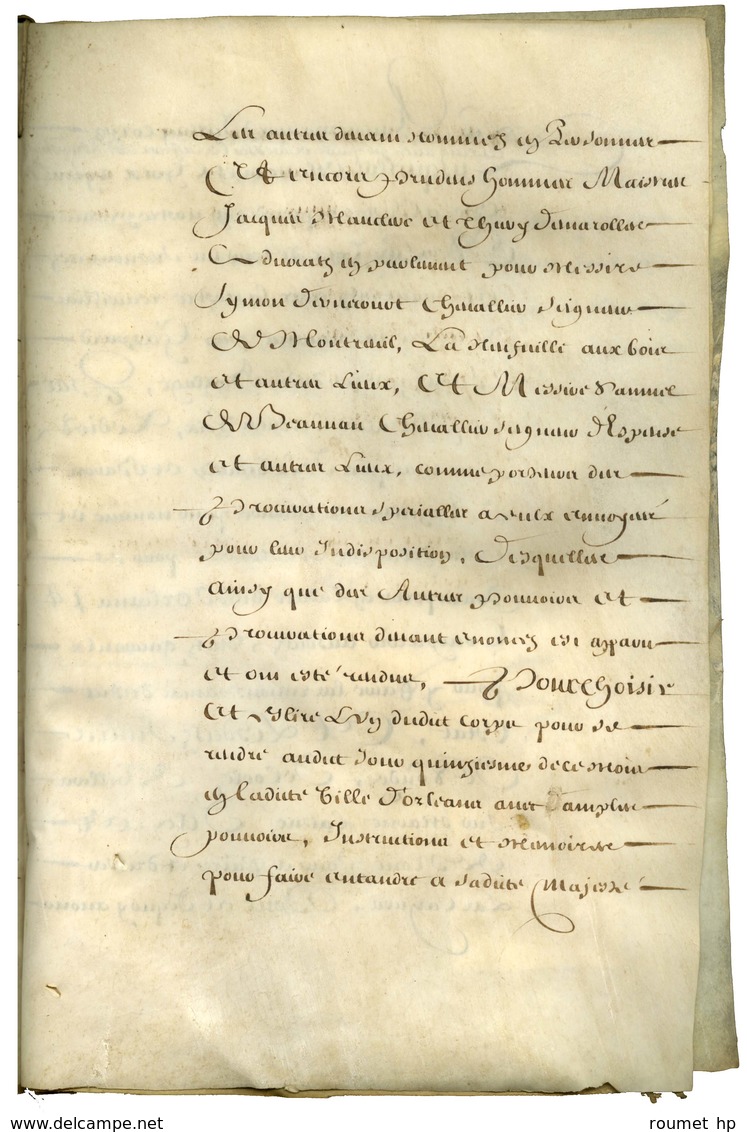 Les autres devant nommez en Personnes
Et encores Prudens hommes Maistres
Jacques Mauclerc et Thierry Desmarolles
Advocatz en parlement pour Messire
Symon Chevallier seigneur
De Montreuil, La Neufville aux bois
et autres Lieux, Et Messire Samuel
De Beauvau Chevallier seigneur d'Espense
et autres Lieux, comme porteurs des
Procurations specialles a eulx envoyées
pour leur Indisposition, Desquelles
ainsy que des Autres pouvoirs et
Procurations devant enoncez est apparu
et ont esté rendues, Pour choisir
et eslire Un dudict corps pour se
rendre audict Jour quinziesme de ce mois
en ladicte Ville d'orleans avec amples
pouvoirs, Instructions et Memoires
pour faire entandre a sadicte Majesté
www.delcampe.net
roumet hp